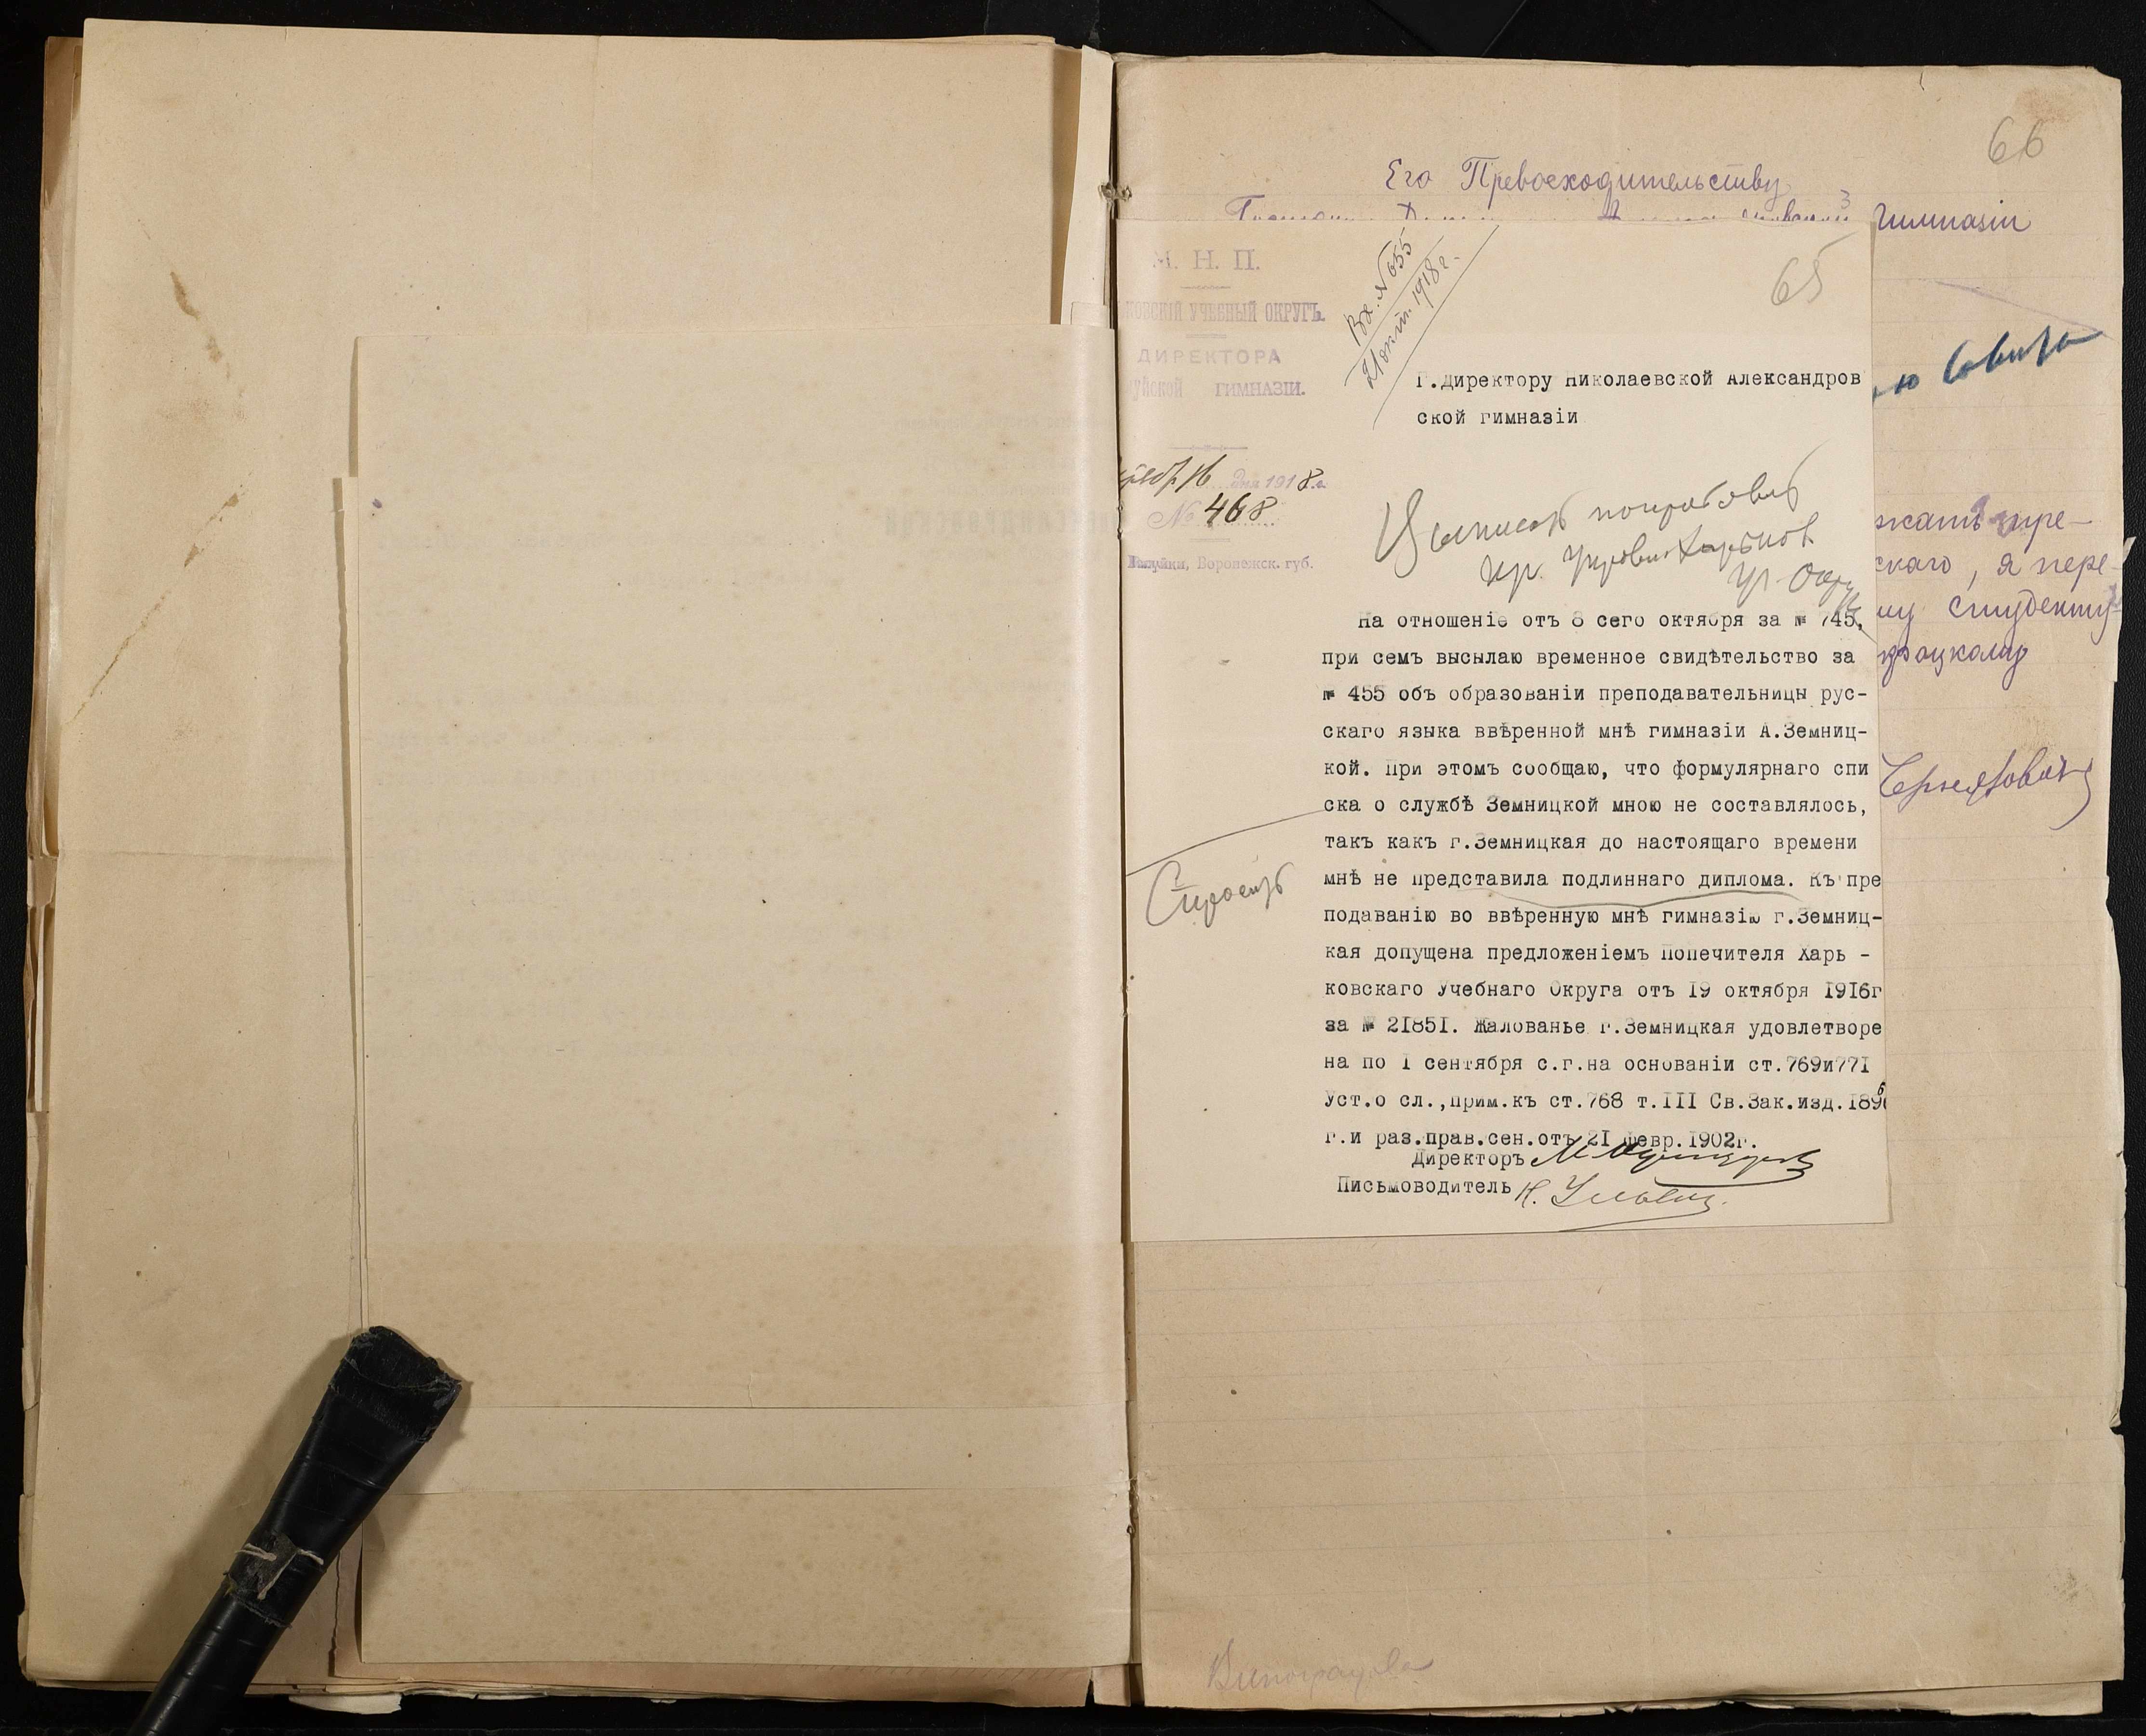 66
Его Превосходительству
Гимназіи
65
Вх. № 655
21 окт. 1918 г.
М. Н. П.
КОВСКІЙ УЧЕБНЫЙ ОКРУГЪ.
ДИРЕКТОРА
УЙСКОЙ ГИМНАЗІИ.
16 дня 1918 г.
№ 468
Валуйки, Воронежск. губ.
Г.Директору Николаевской Александров
ской гимназіи
На отношеніе отъ 8 сего октября за № 745,
при семъ высылаю временное свидѣтельство за
№ 455 объ образованіи преподавательницы рус-
скаго языка ввѣренной мнѣ гимназіи А.Земниц-
кой. При этомъ сообщаю, что формулярнаго спи
ска о службѣ Земницкой мною не составлялось,
такъ какъ г.Земницкая до настоящаго времени
мнѣ не представила подлиннаго диплома. Къ пре
подаванію во ввѣренную мнѣ гимназію г.Земниц-
кая допущена предложеніемъ Попечителя Харь -
ковскаго Учебнаго Округа отъ 19 октября 1916г
за № 21851. Жалованье г.Земницкая удовлетворе
на по 1 сентября с.г.на основаніи ст.769и771
Уст.о сл.,прим.къ ст.768 т.III Св.Зак.изд.1896
г.и раз.прав.сен.отъ 21 февр.1902г.
Директоръ
Письмоводитель Н.
Спросить
жать пре-
скаго, я пере-
му студенту
цкому
Виноградова